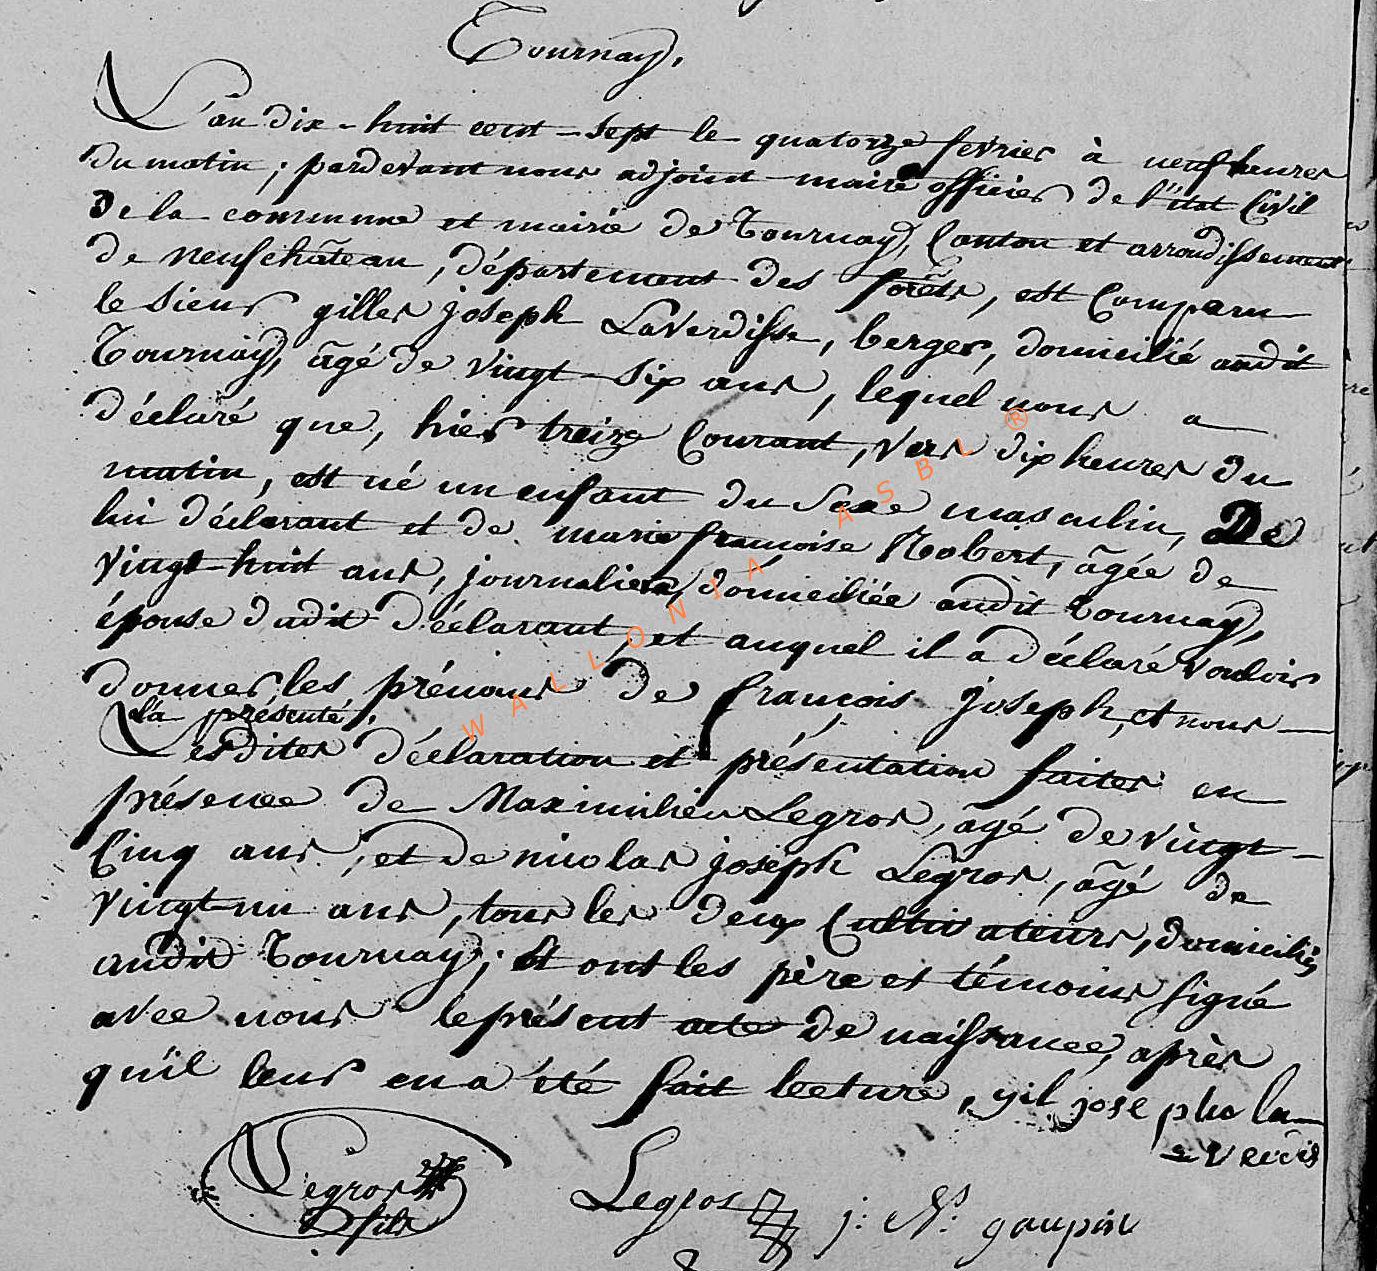 Tournay,
L'an dix-huit cent-sept le quatorze fevrier à neuf heures
du matin, pardevant nous adjoint-maire officier de l'état Civil
De la commune et mairie de Tournay, Canton et arrondissement
de neufchâteau, département des forêts, est Comparu
le sieur gilles joseph LaVerdisse, berger, domicilié audit
Tournay, âgé de vingt-six ans, lequel nous a
déclaré que, hier treize Courant, vers dix heures du
matin, est né un enfant du Sexe masculin, De
lui déclarant et de marie françoise Robert, âgée de
vingt-huit ans, journalière, domiciliée audit Tournay,
épouse dudit Déclarant, et auquel il a déclaré vouloir
donner les prénoms de françois joseph, et nous
l'a présenté.
Lesdites déclaration et présentation faites en
présence de Maximilien Legros, âgé de vingt-
Cinq ans, et de nicolas joseph Legros, âgé de
vingt-un ans, tous les deux Cultivateurs, domiciliés
audit Tournay; Et ont les père et témoins signé
avec nous le présent acte de naissance, après
qu'il leur en a été fait lecture, gil joseph la
verdis
Legros
fils
Legros
j: N: goupin
WALLONIA ASBL ®